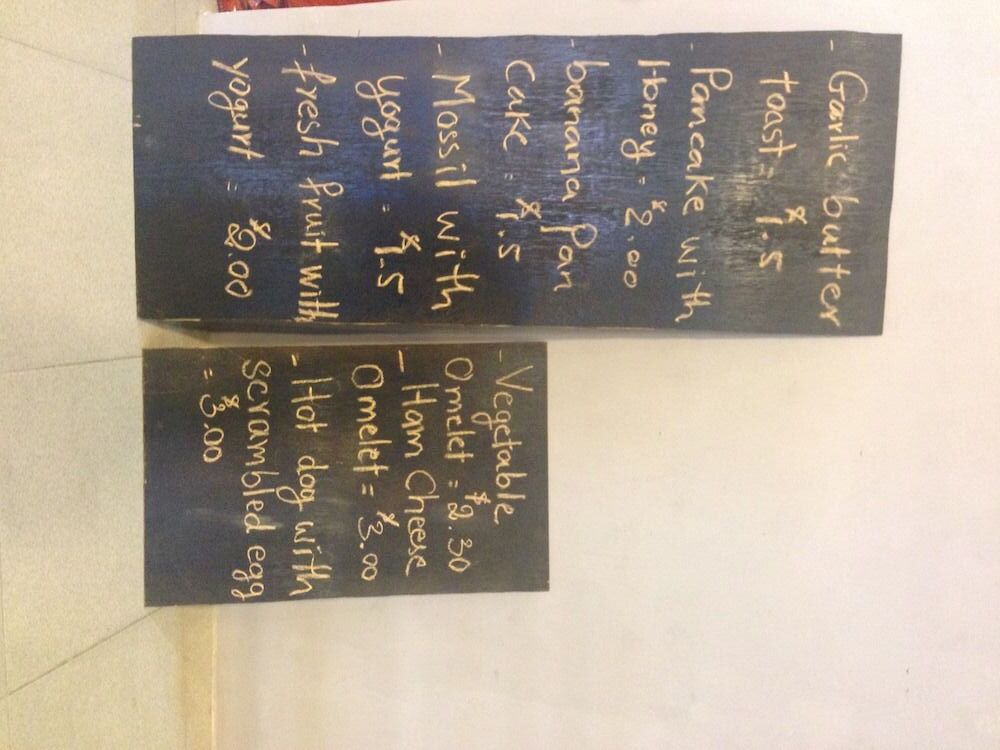 - Garlic butter
toast = $1.5
- Pancake with
Honey = $2.00
- banana Pan
Cake = $1.5
- Mossil with
yogurt = $1.5
- fresh fruit with
yogurt = $2.00
- Vegetable
Omelet = $2.30
- Ham Cheese
Omelet = $3.00
- Hot dog with
Scrambled egg
= $3.00